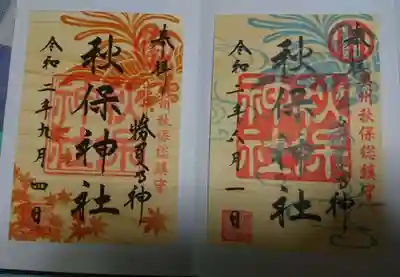 奉拝
州秋保総鎮守
勝負の神
秋保神社
秋保神社
令和二年八月一日
奉拝
秋保総鎮守
勝負の神
秋保神社
秋保神社
令和二年九月四日